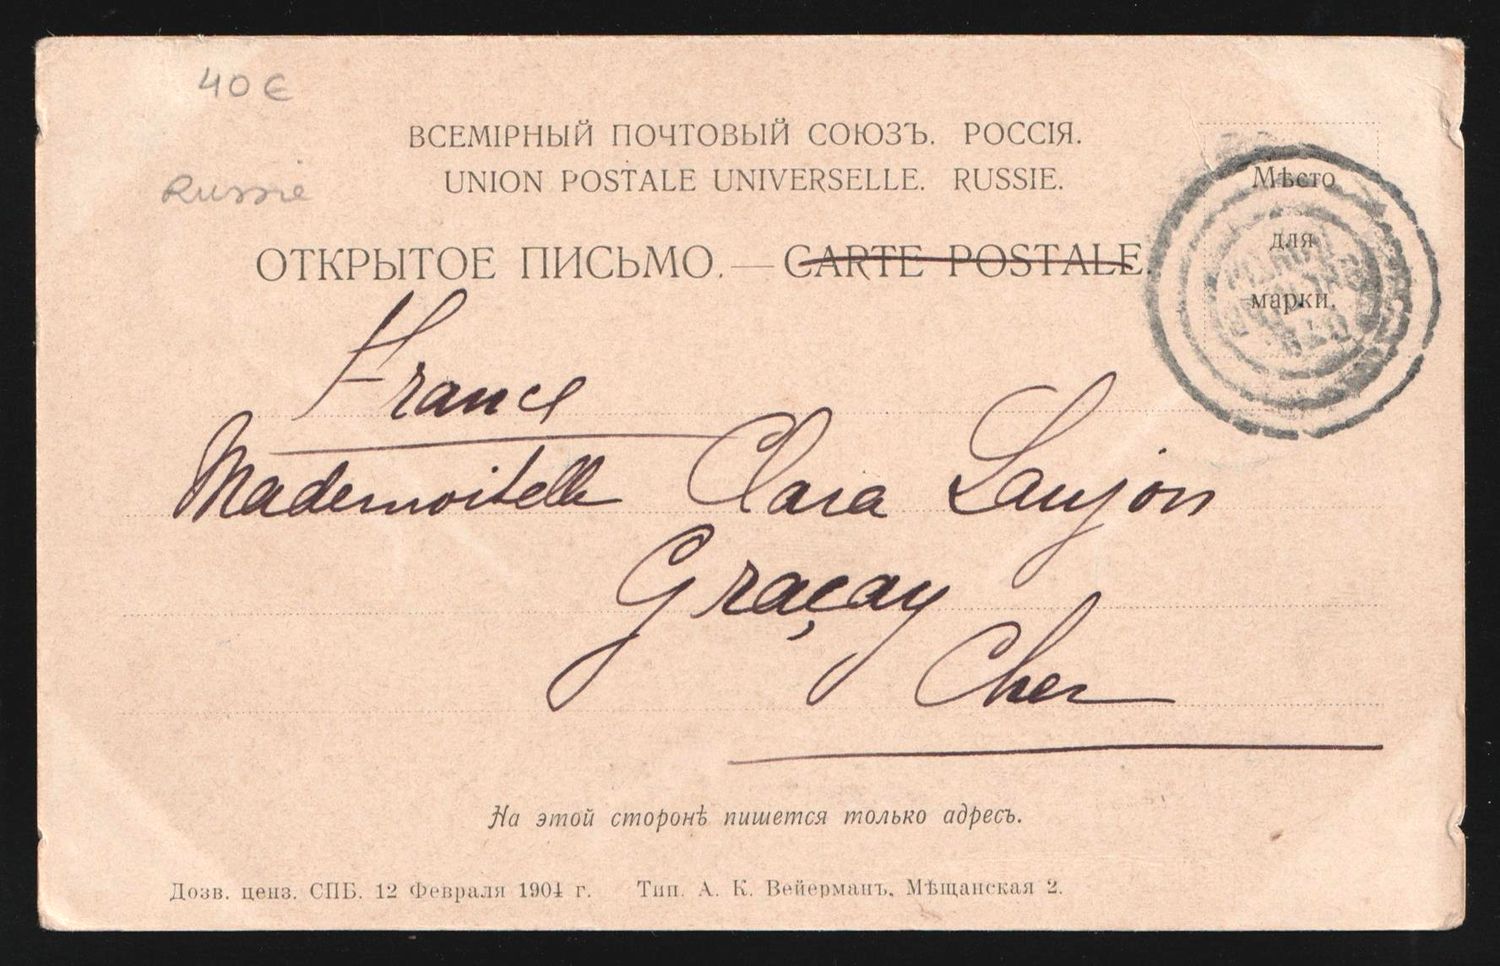 40 €
ВСЕМІРНЫЙ ПОЧТОВЫЙ СОЮЗЪ. РОССІЯ.
Russie
UNION POSTALE UNIVERSELLE. RUSSIE.
Мѣсто
для
марки.
ОТКРЫТОЕ ПИСЬМО. — CARTE POSTALE.
France
Mademoiselle Clara Laujon
Graçay
Cher
На этой сторонѣ пишется только адресъ.
Дозв. ценз. СПБ. 12 Февраля 1904 г. Тип. А. К. Вейерманъ, Мѣщанская 2.